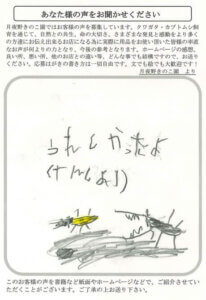 あなた様の声をお聞かせください
月夜野きのこ園ではお客様の声を募集しています。クワガタ・カブトムシ飼
育を通じて、自然との共生、命の大切さ、さまざまな発見と感動をより多く
の方達にお伝え出来るお店になる為に実際に用品をお使い頂いた皆様の率直
なお声が何よりの力となり、今後の参考となります。ホームページの感想、
良い所、悪い所、他のお店との違い等、どんな事でも結構ですので、お送り
下さい。応募はがきの書き方は一切自由です。文でも絵でも大歓迎です！
月夜野きのこ園 より
うれしかったよ
このお客様の声を書籍など紙面やホームページなどで、ご紹介させてい
ただくことがございます。ご了承の上お送り下さい。